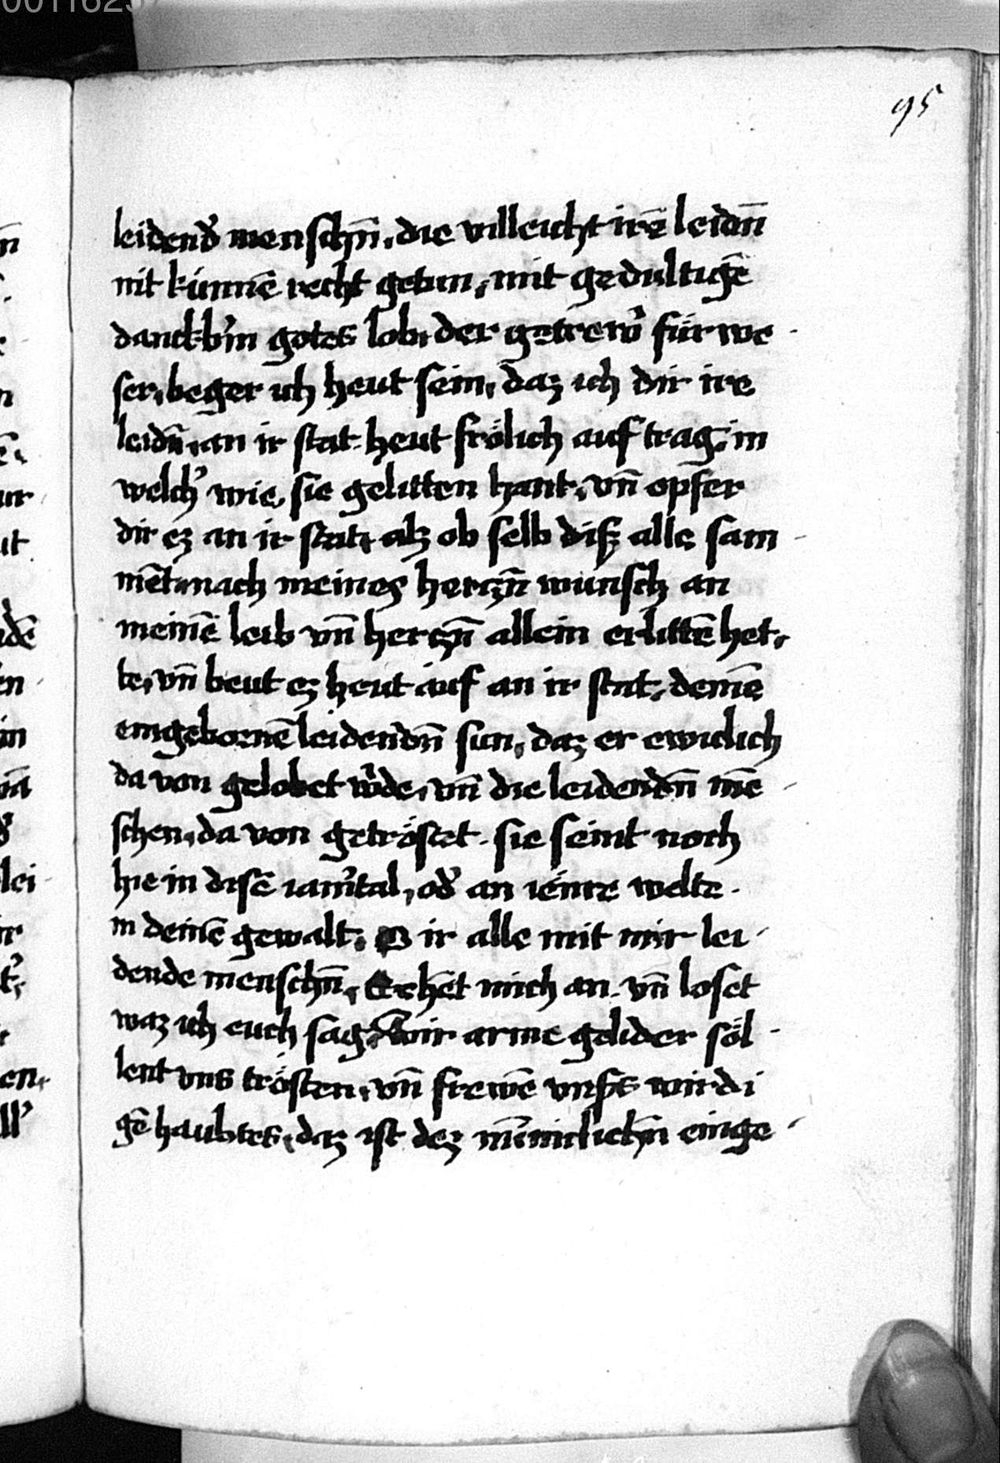 95
leidend᷎ menschn̄. die villeicht irē leidn̄
nit künnē recht getun, mit gedultigē
danckb᷎m gotes lob, der getrew᷎ für we-
ser, beger ich heut sein, daz ich dir ire
leidn̄, an ir stat heut frölich auf trag, in
welch᷎ wie, sie gelitten hant, vn̄ opfer
dir ez an ir stat, alz ob selb diß alle sam-
mēt, nach meines hertzn̄ wunsch an
meinē leib vn̄ hertzn̄ allein erlittē het-
te, vn̄ beut ez heut auf an ir stat, deinē
eingebornē leidendn̄ sun, daz er ewiclich
da von gelobet w᷎de, vn̄ die leidendn̄ mē-
schen, da von getröstet. sie seint noch
hie in disē iam᷎tal, od᷎ an iēnre welte.
in deinē gewalt. O ir alle mit mir lei-
dende menschn̄, Sehēt mich an. vn̄ loset
waz ich euch sag, Wir arme gelider söl-
lent vns trösten, vn̄ frewē vns᷎s wirdi
gē haubtes, daz ist dez miniclichn̄ einge-